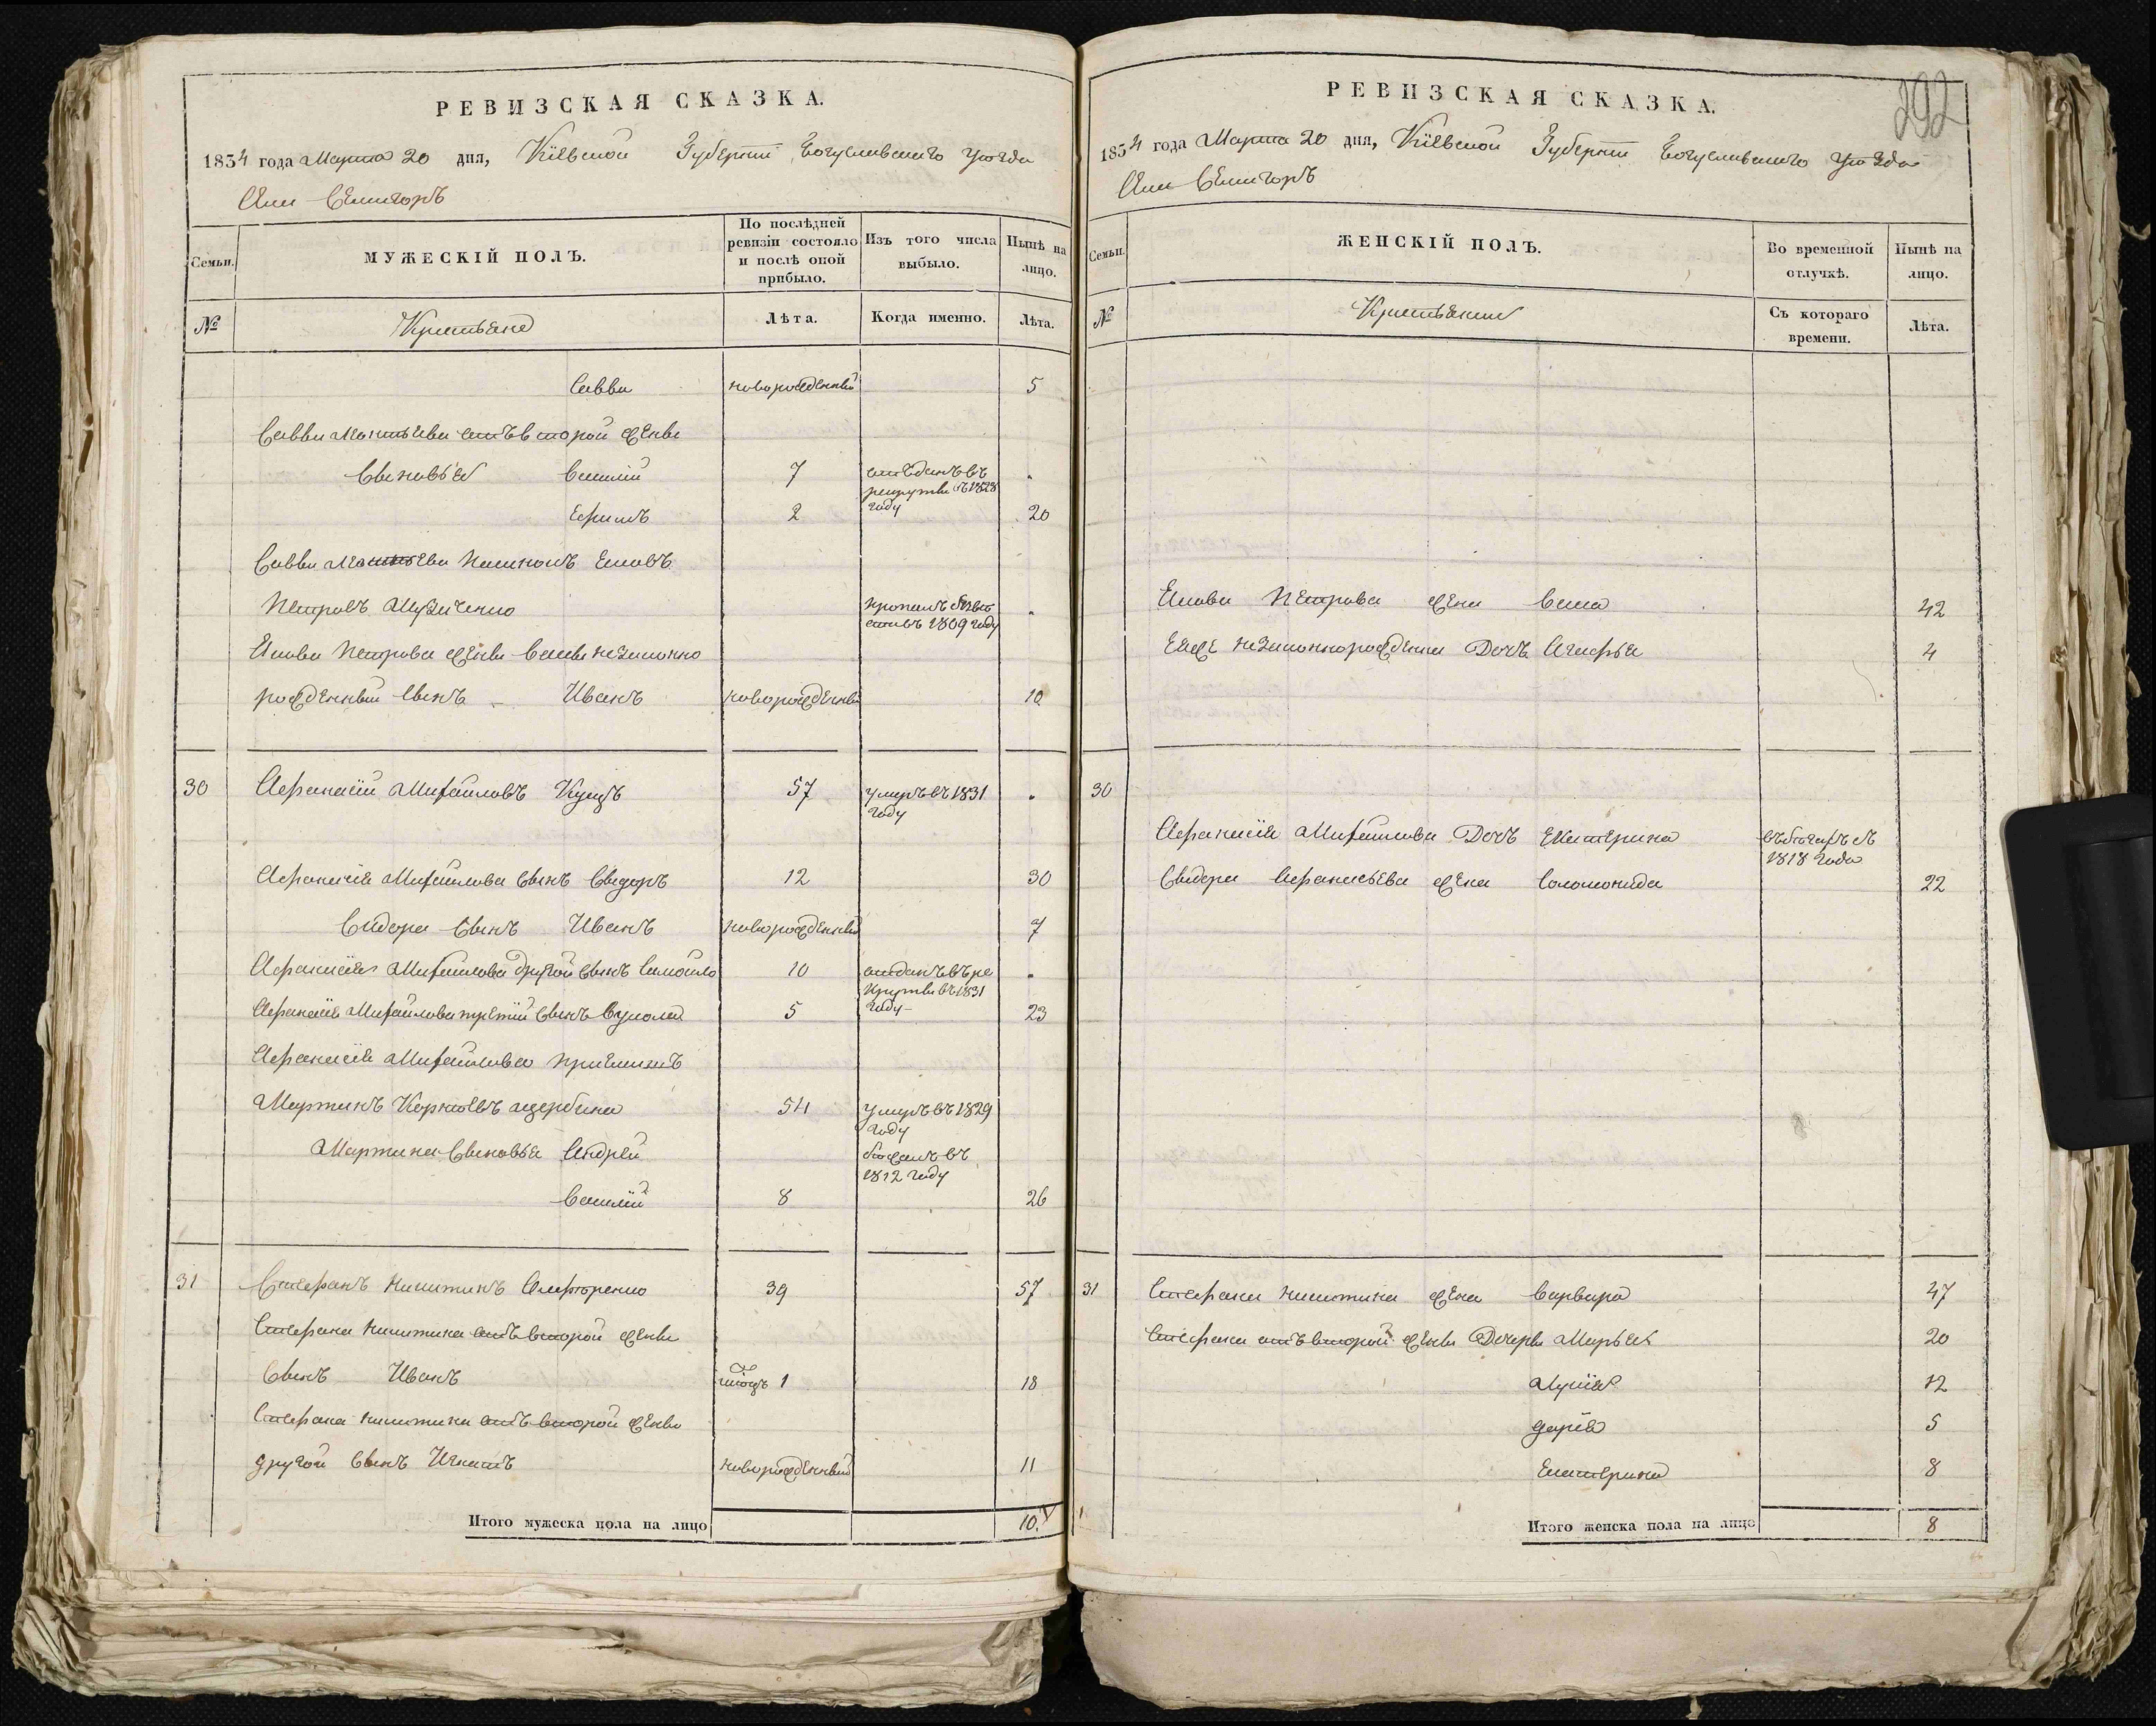 РЕВИЗСКАЯ СКАЗКА.
1834 года Марта 20 дня, Кіевской Губерніи Богуславскаго уѣзда
Села Семигоръ
Семьи.
МУЖЕСКІЙ ПОЛЪ.
По послѣдней ревизіи состояло и послѣ оной прибыло.
Изъ того числа выбыло.
Нынѣ на лицо.
№
Крестьяне
Лѣта.
Когда именно.
Лѣта.
Савва новорожденный 5
Саввы отъ второй жены
Сыновья Василій 7 отъданъ въ
рекруты въ 1828
году
Ефимъ 2 20
Саввы
Петровъ пропалъ безъ
въ 1809 году
Петрова жены незаконно
рожденный сынъ Иванъ новорожденный 10
30 Афанасій Михайловъ Куцъ 57 умеръ въ 1831
году
Афанасія Михайлова сынъ Сыдоръ 12 30
Сидора сынъ Иванъ новорожденный 7
Афанасія Михайлова другой сынъ Самойло 10 отданъ въ ре
круты въ 1831
году
Афанасія Михайлова третій сынъ 5 23
Афанасія Михайлова
Мартинъ щербина 54 умеръ въ 1829
году
Мартина сыновья Андрей бежалъ въ
1812 году
Василій 8 26
31 Стефанъ Никитинъ Олефоренко 39 57
Стефана Никитина отъ второй жены
Сынъ Иванъ 1 18
Стефана Никитина отъ второй жены
другой сынъ Игнатъ новорожденный 11
Итого мужеска пола на лицо 10.
РЕВИЗСКАЯ СКАЗКА.
292
1834 года Марта 20 дня, Кіевской Губерніи Богуславскаго уѣзда
Села Семигоръ
Семьи.
ЖЕНСКІЙ ПОЛЪ.
Во временной отлучкѣ.
Нынѣ на лицо.
№
Крестьянки
Съ котораго времени.
Лѣта.
Петрова жена 42
незаконнорожденна Дочь Агафья 4
30
Афанасія Михайлова Дочь Екатерина въ бегахъ съ
1818 года
Сыдора Афанасьева жена Соломонида 22
31 Стефана Никитина жена Варвара 47
Стефана отъ второй жены Дочеры Марья 20
12
дарія 5
Екатерина 8
Итого женска пола на лицо 8